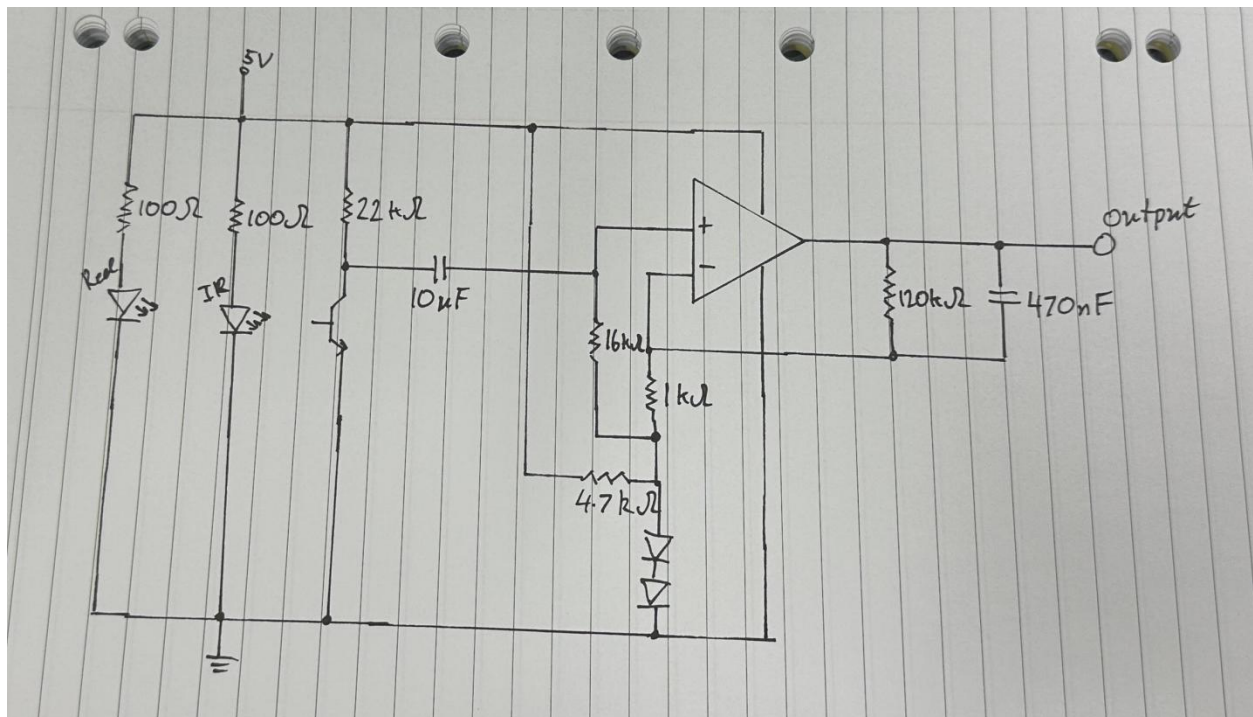 5V
100Ω
100Ω
22kΩ
Red
IR
10μF
+
−
16kΩ
1kΩ
4.7kΩ
120kΩ
470nF
output